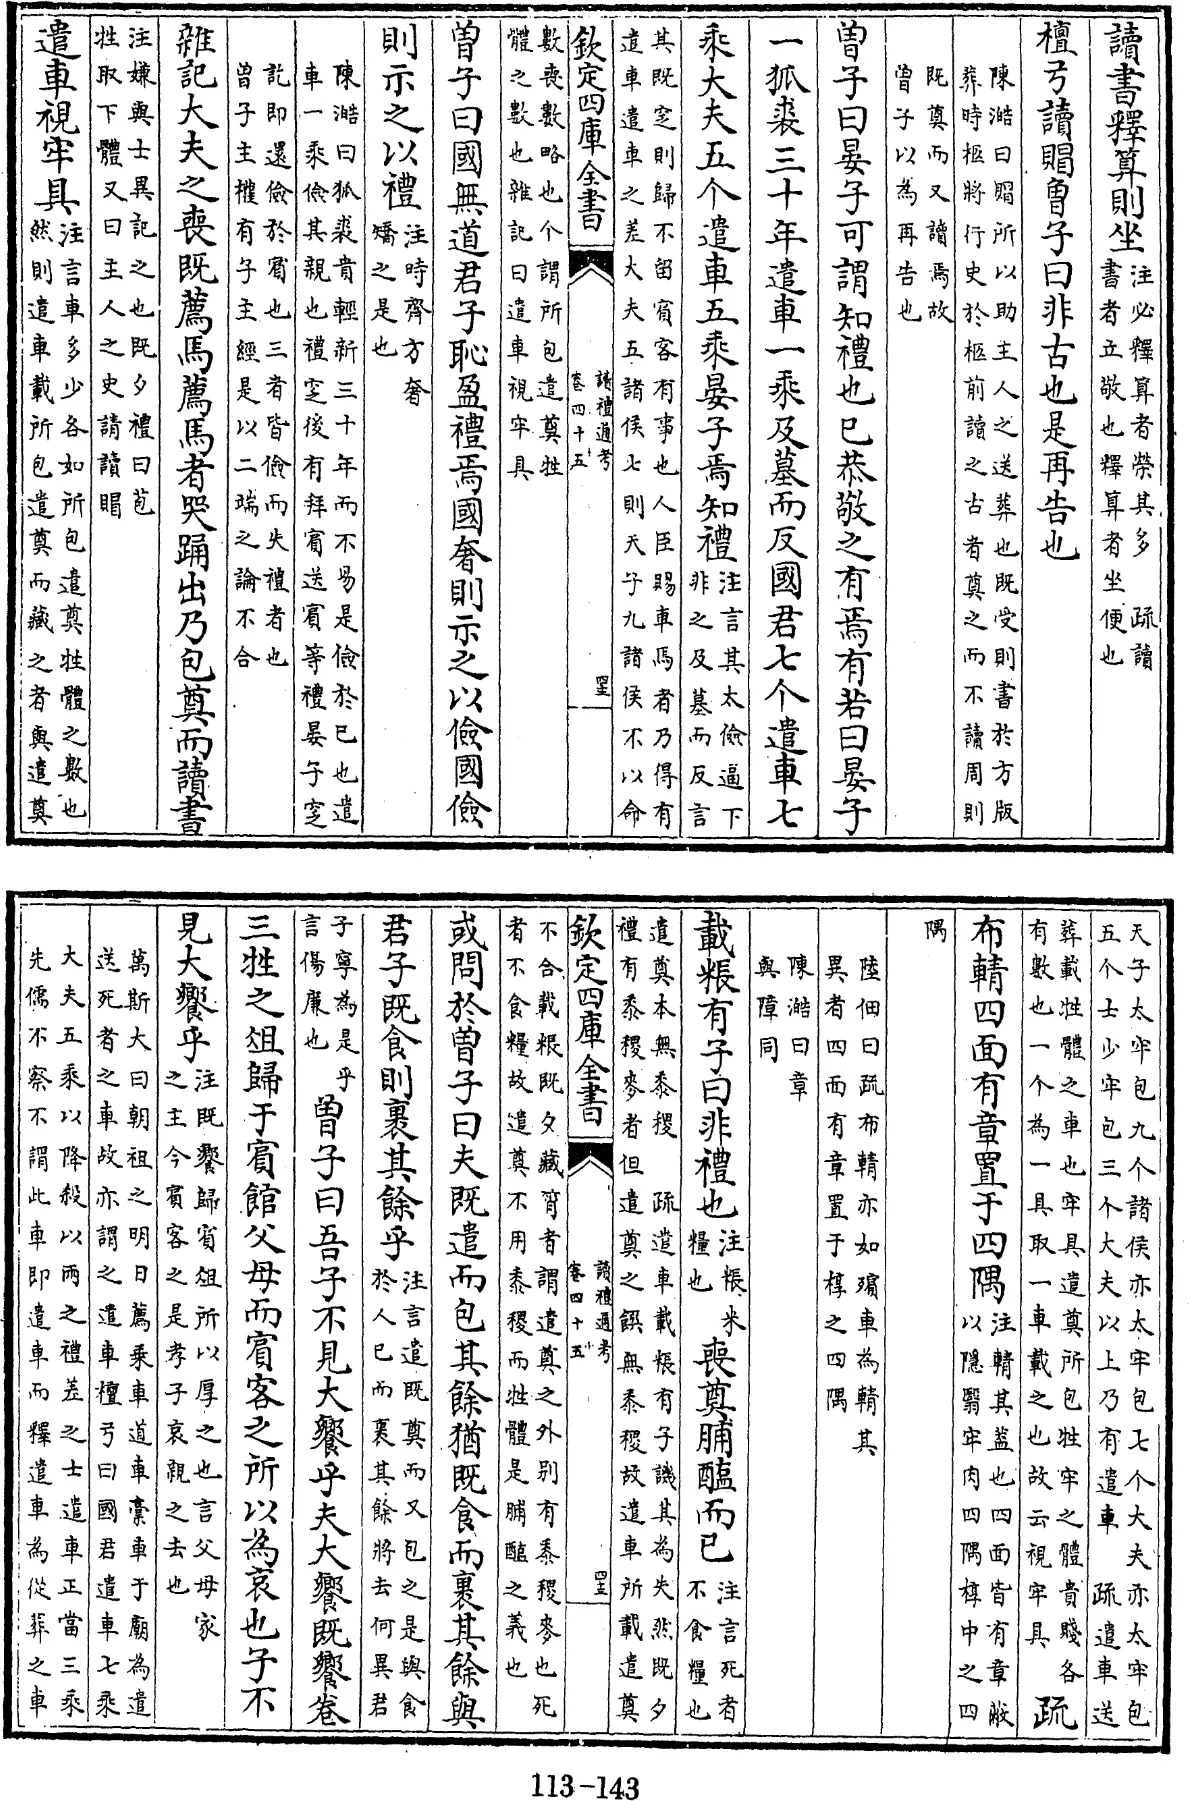 讀書釋算則坐注必釋算者榮其多 疏讀
書者立敬也釋算者坐便也
檀弓讀賵曾子曰非古也是再告也
陳澔曰賵所以助主人之送葬也既受則書於方版
葬時柩將行史於柩前讀之古者奠之而不讀周則
既奠而又讀焉故
曾子以為再告也
曾子曰晏子可謂知禮也已恭敬之有焉有若曰晏子
一狐裘三十年遣車一乘及墓而反國君七个遣車七
乘大夫五个遣車五乘晏子焉知禮注言其太儉逼下
非之及墓而反言
其既窆則歸不留賓客有事也人臣賜車馬者乃得有
遣車遣車之差大夫五諸侯七則天子九諸侯不以命
欽定四庫全書
讀禮通考
卷四十五
數喪數略也个謂所包遣奠牲
體之數也雜記曰遣車視牢具
曾子曰國無道君子恥盈禮焉國奢則示之以儉國儉
則示之以禮注時齊方奢
矯之是也
陳澔曰狐裘貴輕新三十年而不易是儉於己也遣
車一乘儉其親也禮窆後有拜賓送賓等禮晏子窆
訖即還儉於賓也三者皆儉而失禮者也
曾子主權有子主經是以二端之論不合
雜記大夫之喪既薦馬薦馬者哭踊出乃包奠而讀書
注嫌與士異記之也既夕禮曰苞
牲取下體又曰主人之史請讀賵
遣車視牢具注言車多少各如所包遣奠牲體之數也
然則遣車載所包遣奠而藏之者與遣奠
天子太牢包九个諸侯亦太牢包七个大夫亦太牢包
五个士少牢包三个大夫以上乃有遣車 疏遣車送
葬載牲體之車也牢具遣奠所包牲牢之體貴賤各
有數也一个為一具取一車載之也故云視牢具 疏
布輤四面有章置于四隅注輤其蓋也四面皆有章蔽
以隱翳牢肉四隅椁中之四
隅
陸佃曰疏布輤亦如殯車為輤其
異者四面有章置于椁之四隅
陳澔曰章
與障同
載粻有子曰非禮也注粻米
糧也喪奠脯醢而已注言死者
不食糧也
遣奠本無黍稷 疏遣車載粻有子譏其為失然既夕
禮有黍稷麥者但遣奠之饌無黍稷故遣車所載遣奠
欽定四庫全書
讀禮通考
卷四十五
不合載粻既夕藏筲者謂遣奠之外別有黍稷麥也死
者不食糧故遣奠不用黍稷而牲體是脯醢之義也
或問於曾子曰夫既遣而包其餘猶既食而裹其餘與
君子既食則裹其餘乎注言遣既奠而又包之是與食
於人已而裹其餘將去何異君
子寧為是乎
言傷廉也曾子曰吾子不見大饗乎夫大饗既饗卷
三牲之俎歸于賓館父母而賓客之所以為哀也子不
見大饗乎注既饗歸賓俎所以厚之也言父母家
之主今賓客之是孝子哀親之去也
萬斯大曰朝祖之明日薦乘車道車槀車于廟為遣
送死者之車故亦謂之遣車檀弓曰國君遣車七乘
大夫五乘以降殺以兩之禮差之士遣車正當三乘
先儒不察不謂此車即遣車而釋遣車為從葬之車
113-143